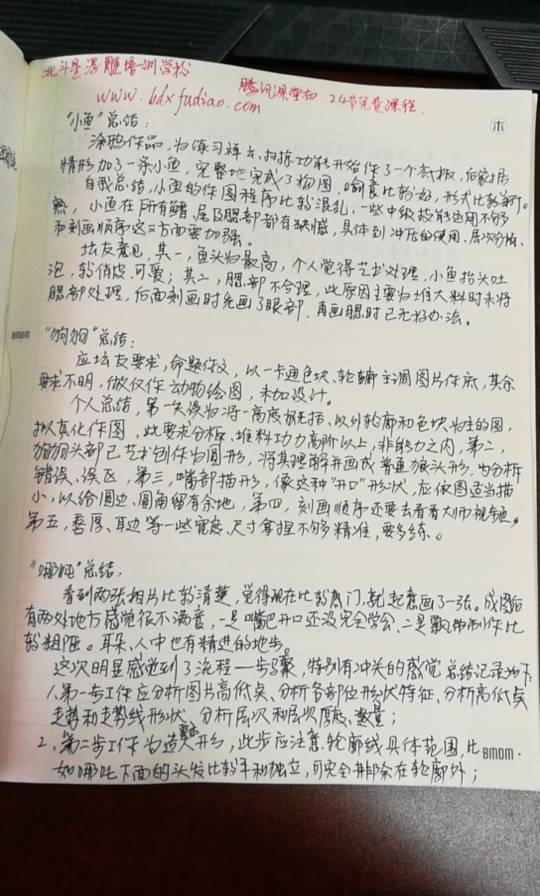 北斗星浮雕培训学校
腾讯课堂 24节免费课程.
www.bdxfudiao.com
木
"小鱼"总结:
涂鸦作品,为练习祥云、扫掠功能开始作了一个底板,后来据
情形加了一条小鱼,完整地完成了构图,喻意比较好,形式比较新。
自我总结,小鱼的作图程序比较混乱,一些中级技能运用不够多
熟,小鱼在所有鳍、尾及腮部都有缺憾,具体到冲压的使用、层次分析、
和刻画顺序这三方面要加强。
坛友意见,其一,鱼头为最高,个人觉得艺术处理,小鱼抬头吐
泡,较俏皮,可爱;其二,腮部不合理,此原因主要为堆大料时未将
腮部处理,后面刻画时先画了眼部,再画腮时已无好办法。
"狗狗"总结:
应坛友要求,命题作文,以一卡通色块、轮廓主调图片作底,其余
要求不明,做仅作动物绘图,未加设计。
个人总结,第一失误为将一高度概括、以外轮廓和色块为主的图,
拟真化作图,此要求分析、堆料功力高阶以上,非能力之内,第二,
狗狗头部已艺术创作为圆形,将其理解并画成普通狼头形,为分析
错误、误区,第三,嘴部描形,像这种"开口"形状,应依图适当描
小,以给圆边、圆角留有余地,第四,刻画顺序还要去看看大师视频,
第五,唇厚、耳边等一些宽度、尺寸拿捏不够多精准,要多练。
"哪吒"总结,
看到两张相片比较清楚,觉得现在比较热门,就起意画了一张。成图后
有两处地方感觉很不满意,一是嘴巴开口还没完全学会,二是飘带制作比
较粗陋。耳朵、人中也有精进的地步。
这次明显感觉到了流程一步骤,特别有冲关的感觉,总结记录如下:
1.第一步工作应分析图片高低点、分析各部位形状特征、分析高低点
走势和走势线形状、分析层次和层次厚度、数量;
2、第二步工作为造大形,此步应注意轮廓线具体范围,比
如哪吒下面的头发比较平和独立,可完全排除在轮廓外;
BMDM
BMDM